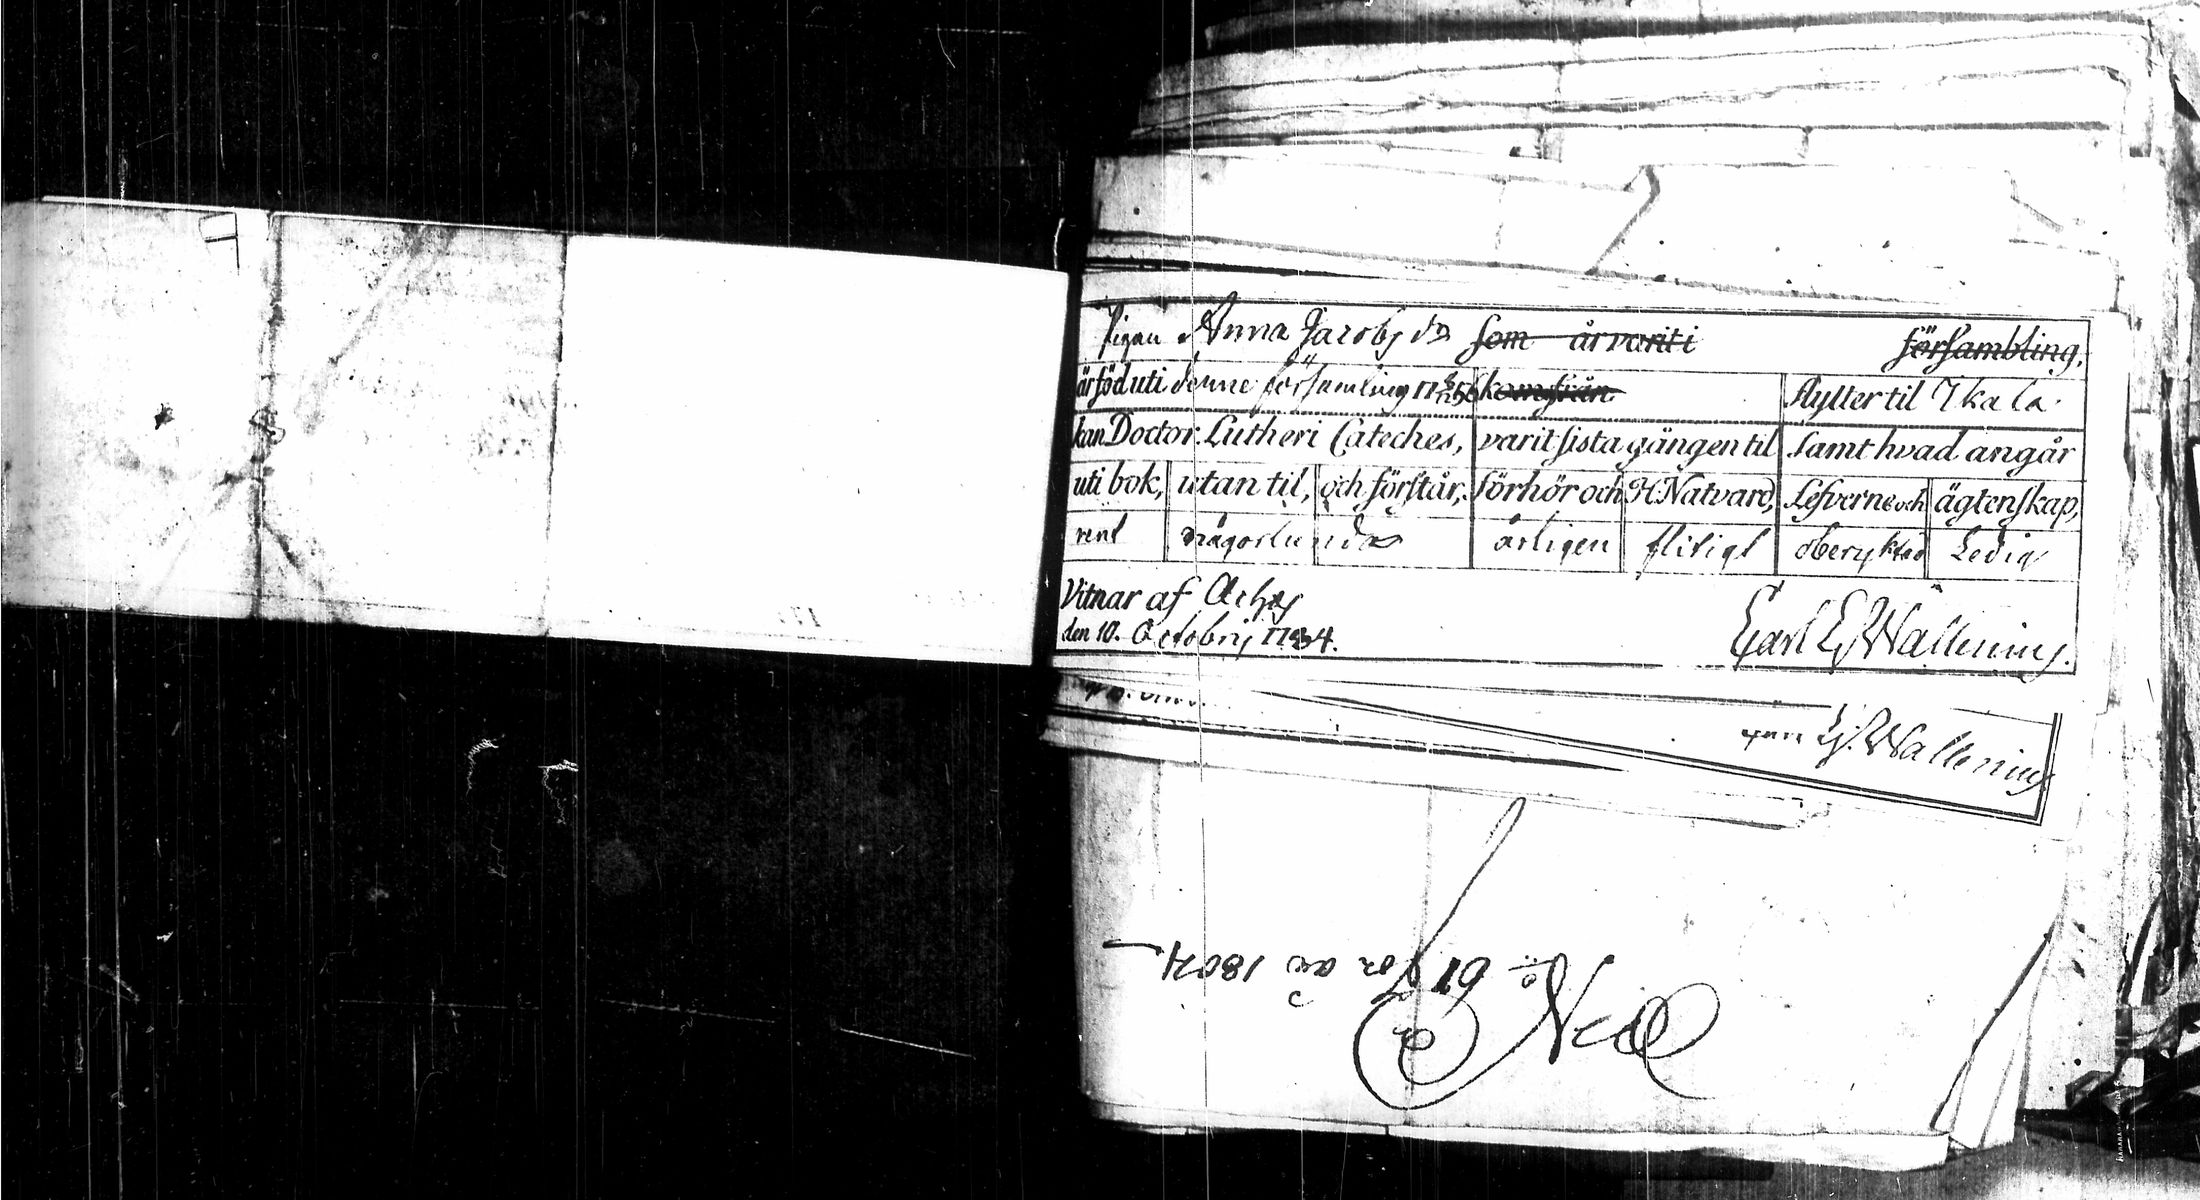 Pigan Anna Jacobs dr som år varit i försambling,
är föd uti denne församling 17 kom från flytter til Ikala
kan Doctor Lutheri Cateches, varit sista gången til samt hvad angår
uti bok, utan til, och förstår, förhör och H. Natvard, Lefverne och ägtenskap,
rent någorlunda årligen flitigt oberyktad Ledig
Vitnar af Achas
den 10. Octobris
Carl Ej. Wallenius.
Ej. Wallenius
No 61 för år 1804